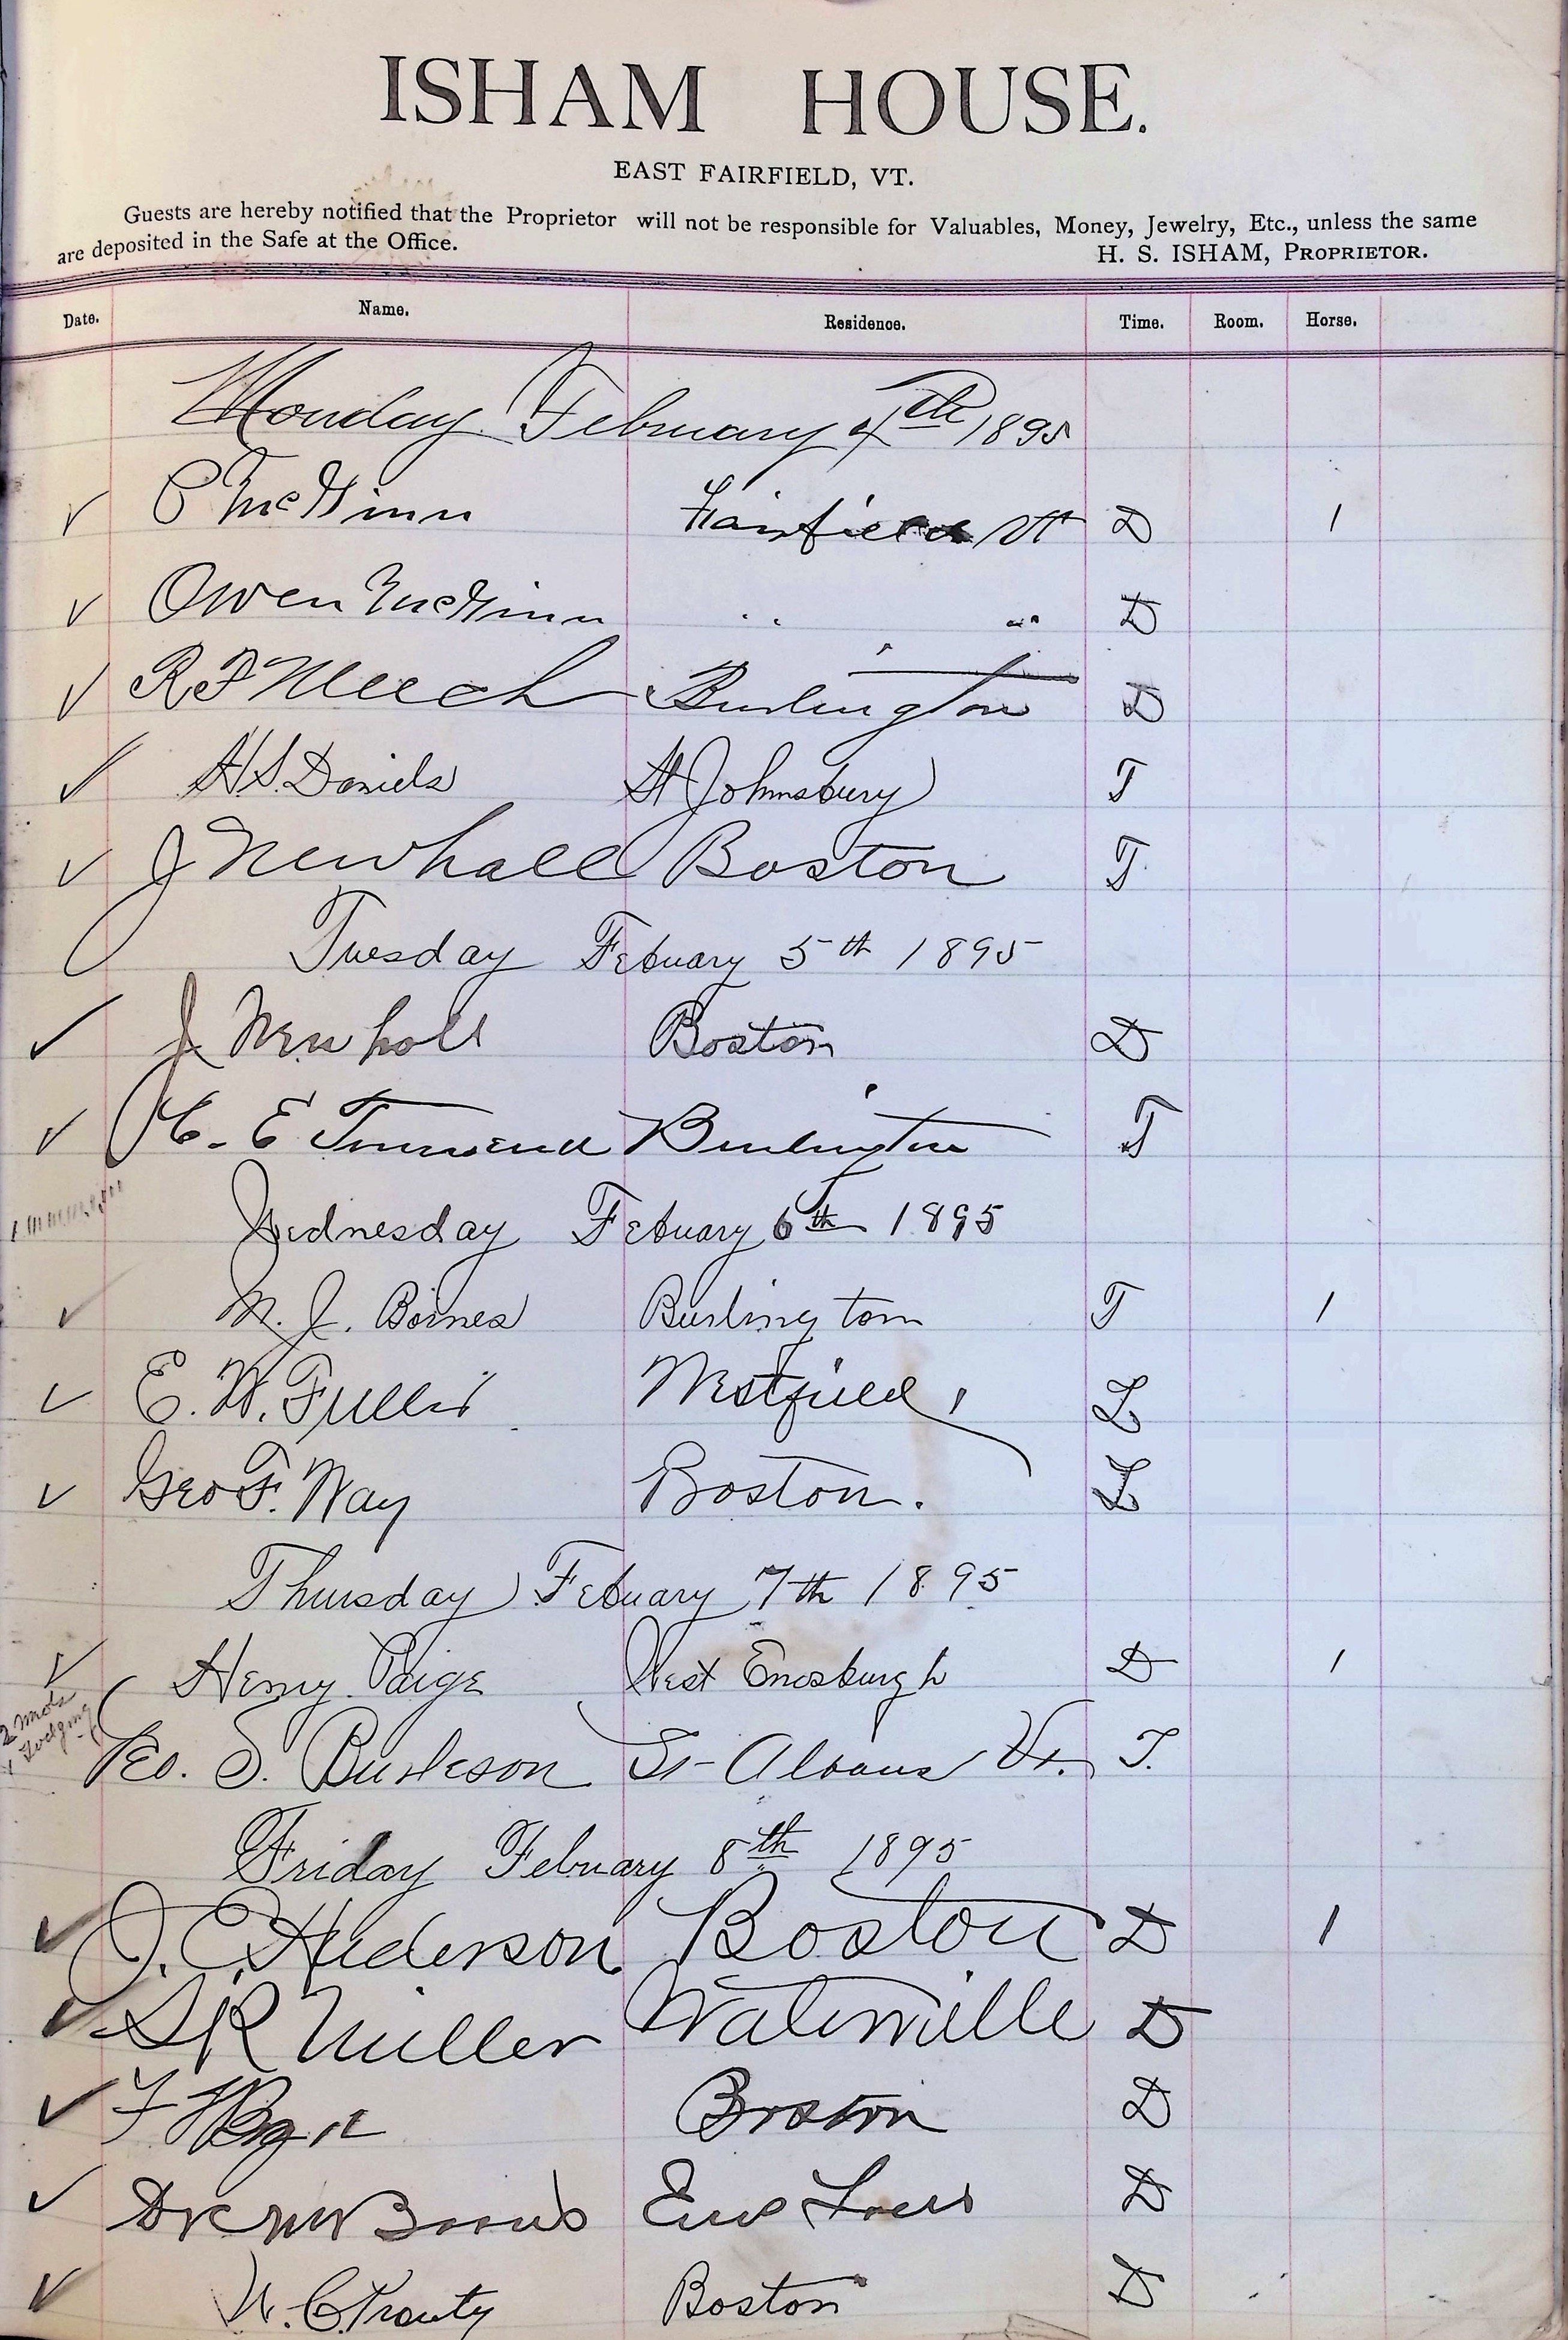 ISHAM HOUSE.
EAST FAIRFIELD, VT.
Guests are hereby notified that the Proprietor will not be responsible for Valuables, Money, Jewelry, Etc., unless the same
are deposited in the Safe at the Office.
H. S. ISHAM, PROPRIETOR.
Date. Name. Residence. Time. Room. Horse.
Monday February 4th 1895
✓ P McGinn Fairfield Vt D 1
✓ Owen McGinn " " D
✓ R F Meech Burlington D
✓ H. S. Daniels St Johnsbury T
✓ J Newhall Boston T
Tuesday Febuary 5th 1895
✓ J Newhall Boston D
✓ C. E Townsend Burlington T
Wednesday Febuary 6th 1895
✓ M. J. Barnes Burlington T 1
✓ E. W. Fuller Westfield, L
✓ Geo F. Way Boston. L
Thursday Febuary 7th 1895
✓ Henry Paige West Enosburgh D 1
2 meals
1 Lodging
Geo. S. Burleson St-Albans Vt. T.
Friday February 8th 1895
✓ J. C. Henderson Boston D 1
✓ S R Miller Waterville D
✓ F Boston D
✓ Dr D
✓ W. C. Prouty Boston D